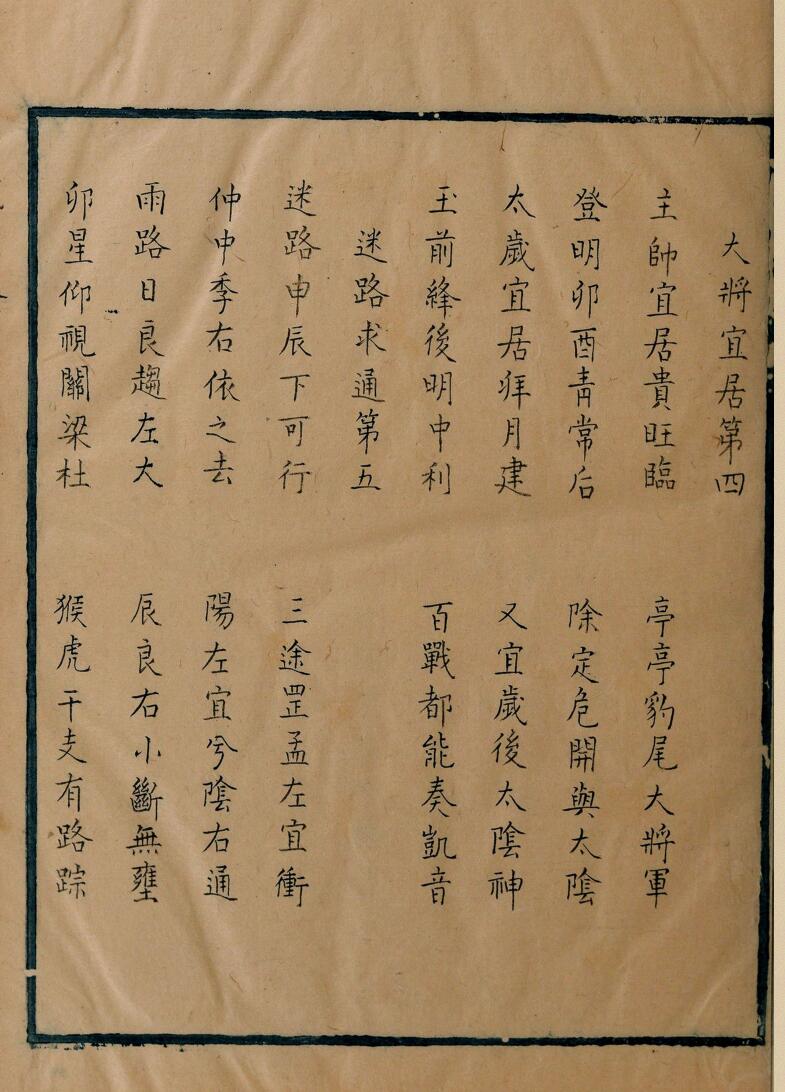 大將宜居第四
主帥宜居貴旺臨　亭亭豹尾大將軍
登明卯酉青常后　除定危開與太陰
太歲宜居拜月建　又宜歲後太陰神
玉前絳後明中利　百戰都能奏凱音
迷路求通第五
迷路申辰下可行　三途罡孟左宜衝
仲中季右依之去　陽左宜兮陰右通
雨路日良趨左大　辰良右小斷無壅
卯星仰視關梁杜　猴虎干支有路踪